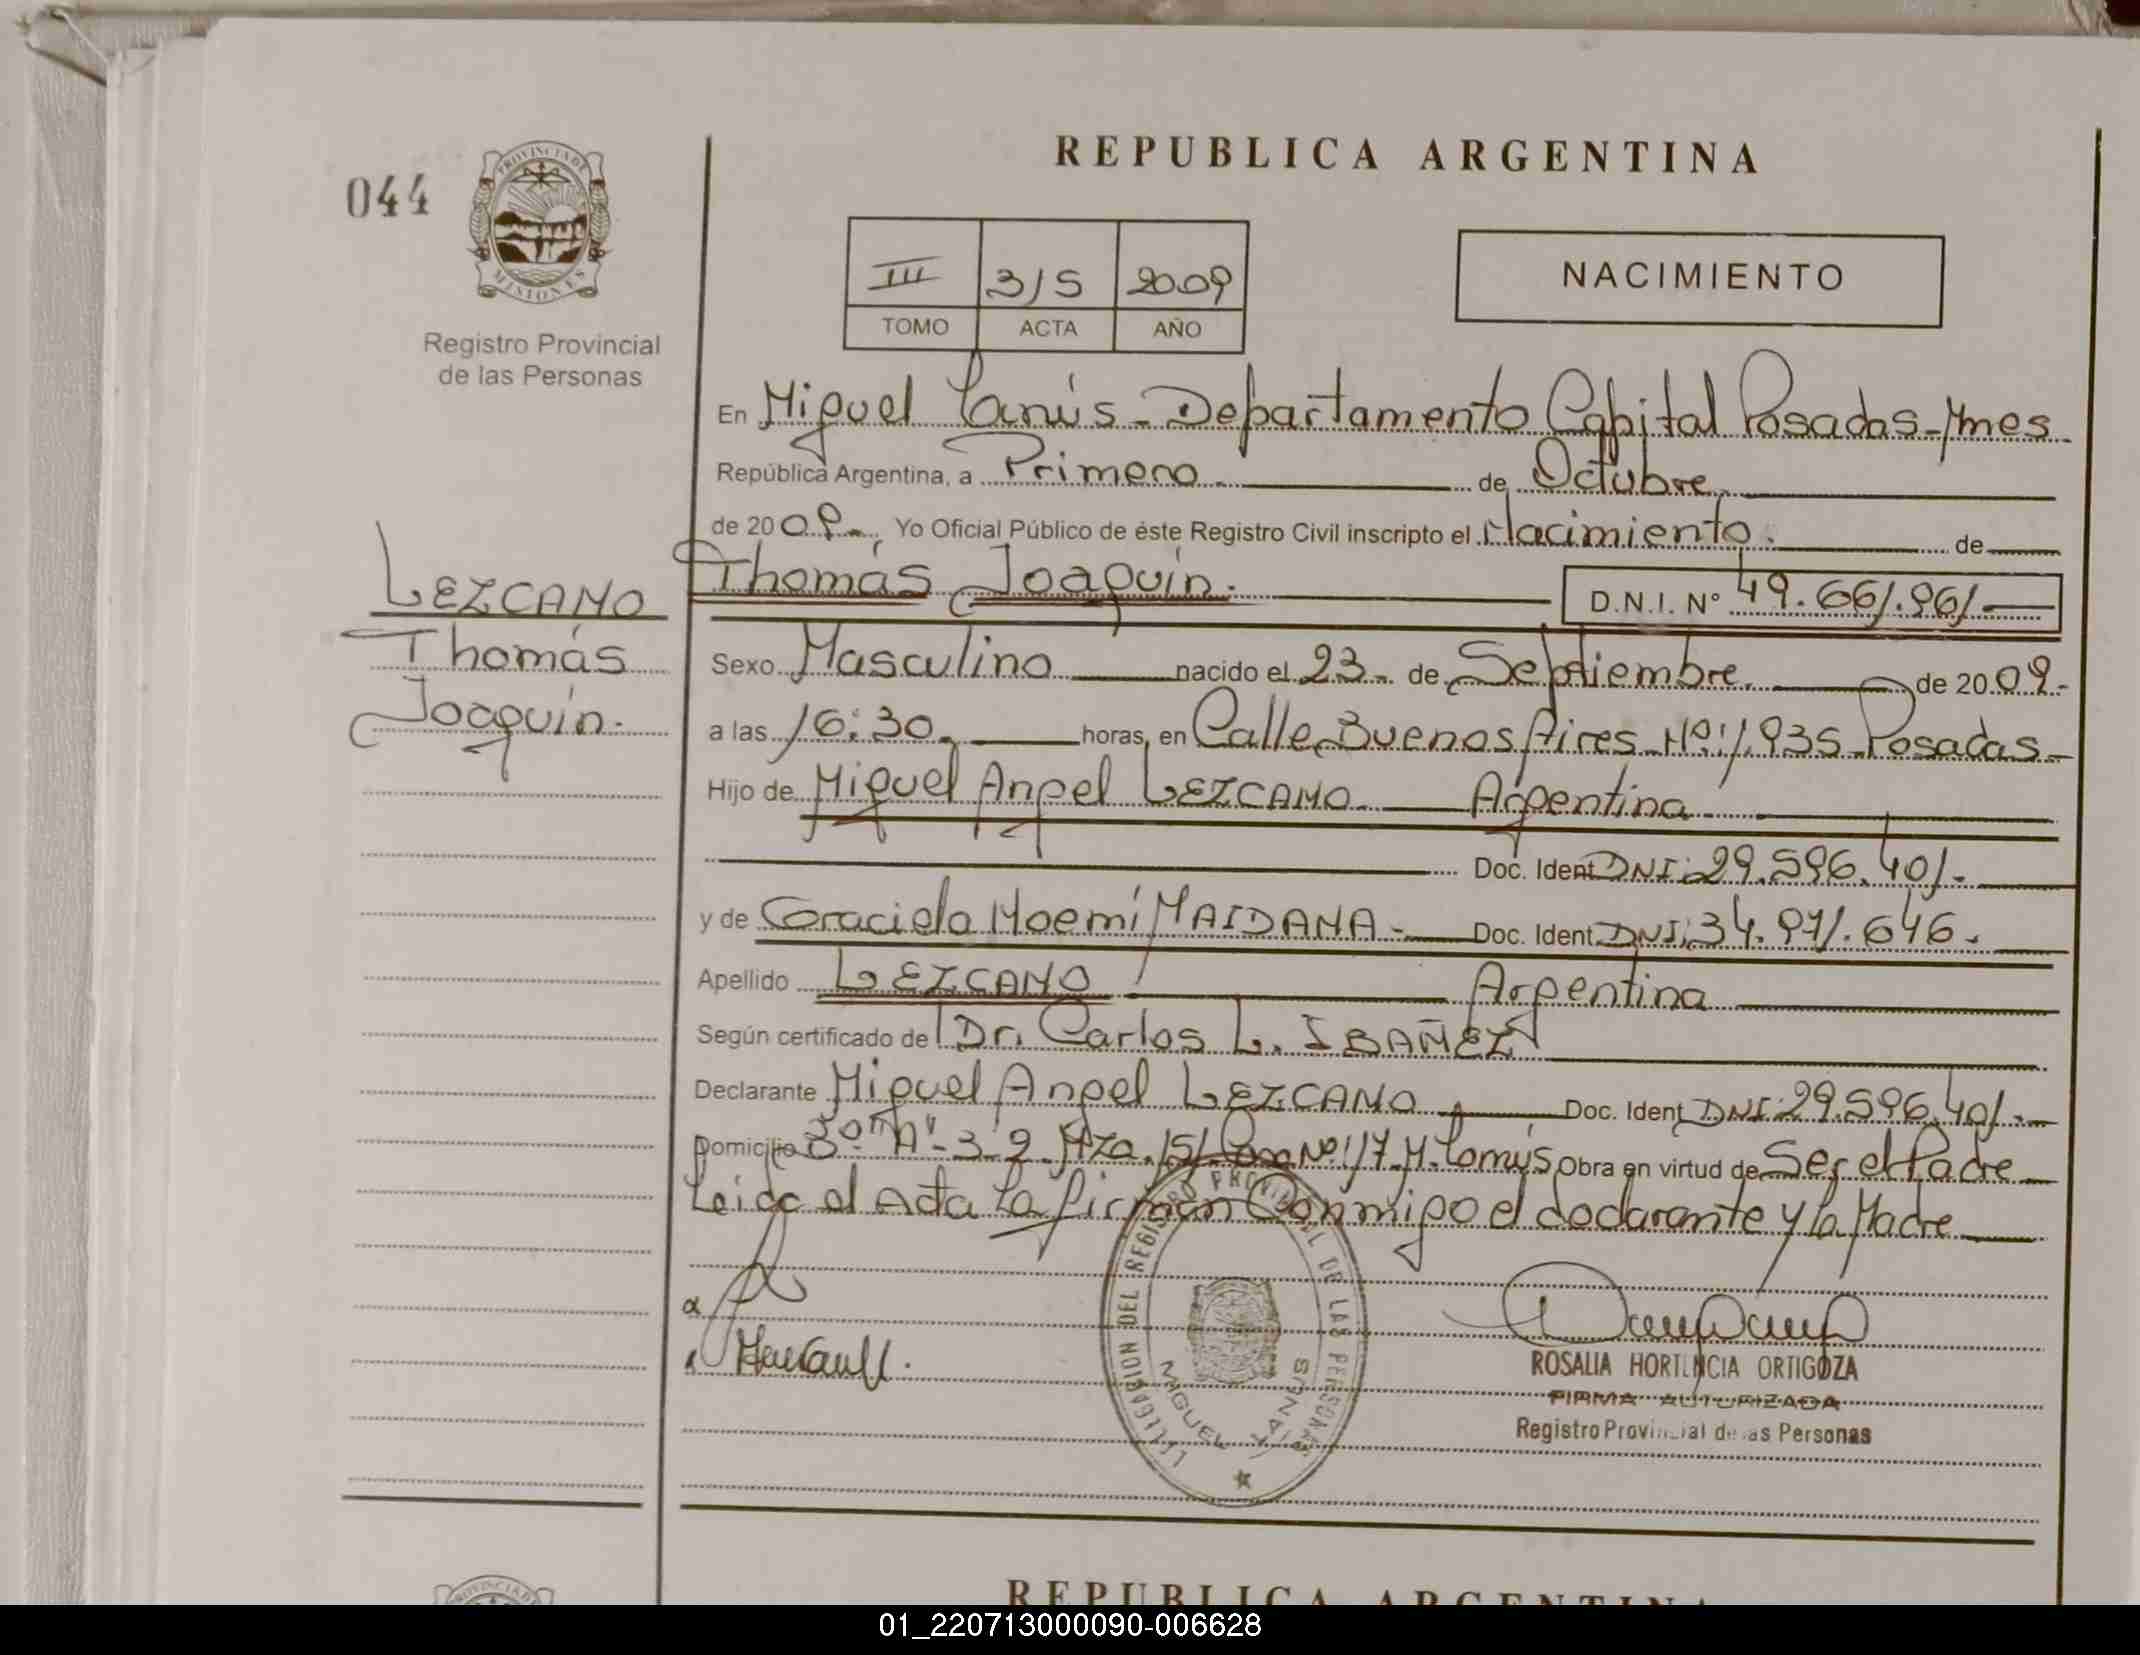 REPUBLICA ARGENTINA
044
PROVINCIA DE
MISIONES
Registro Provincial
de las Personas
III 315 2009
TOMO ACTA AÑO
NACIMIENTO
En Miguel Lanús - Departamento Capital Posadas - Mnes
República Argentina, a Primero de Octubre
de 2009 Yo Oficial Público de éste Registro Civil inscripto el Nacimiento de
Thomás Joaquín. D.N.I. Nº 49.661.961
LEZCANO
Thomás
Joaquín.
Sexo Masculino nacido el 23 de Septiembre de 2009
a las 16:30 horas, en Calle Buenos Aires Nº 1935 Posadas
Hijo de Miguel Angel LEZCANO Argentina
Doc. Ident DNI: 29.596.401.
y de Graciela Noemí MAIDANA - Doc. Ident. DNI: 34.971.646.
Apellido LEZCANO Argentina
Según certificado de Dr. Carlos L. IBAÑEZ
Declarante Miguel Angel LEZCANO Doc. Ident DNI: 29.596.401.
Domicilio 3º "A" Mza. 151 Nº 117 M. Lanús Obra en virtud de Ser el Padre
Leida el Acta la firman Conmigo el declarante y la Madre
DELEGACION DEL REGISTRO PROVINCIAL DE LAS PERSONAS
MIGUEL LANUS
ROSALIA HORTENCIA ORTIGOZA
FIRMA AUTORIZADA
Registro Provincial de las Personas
REPUBLICA ARGENTINA
01_220713000090-006628